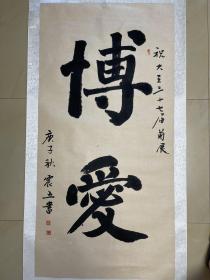 祝大至三十七届菊展
博愛
庚子秋震五書